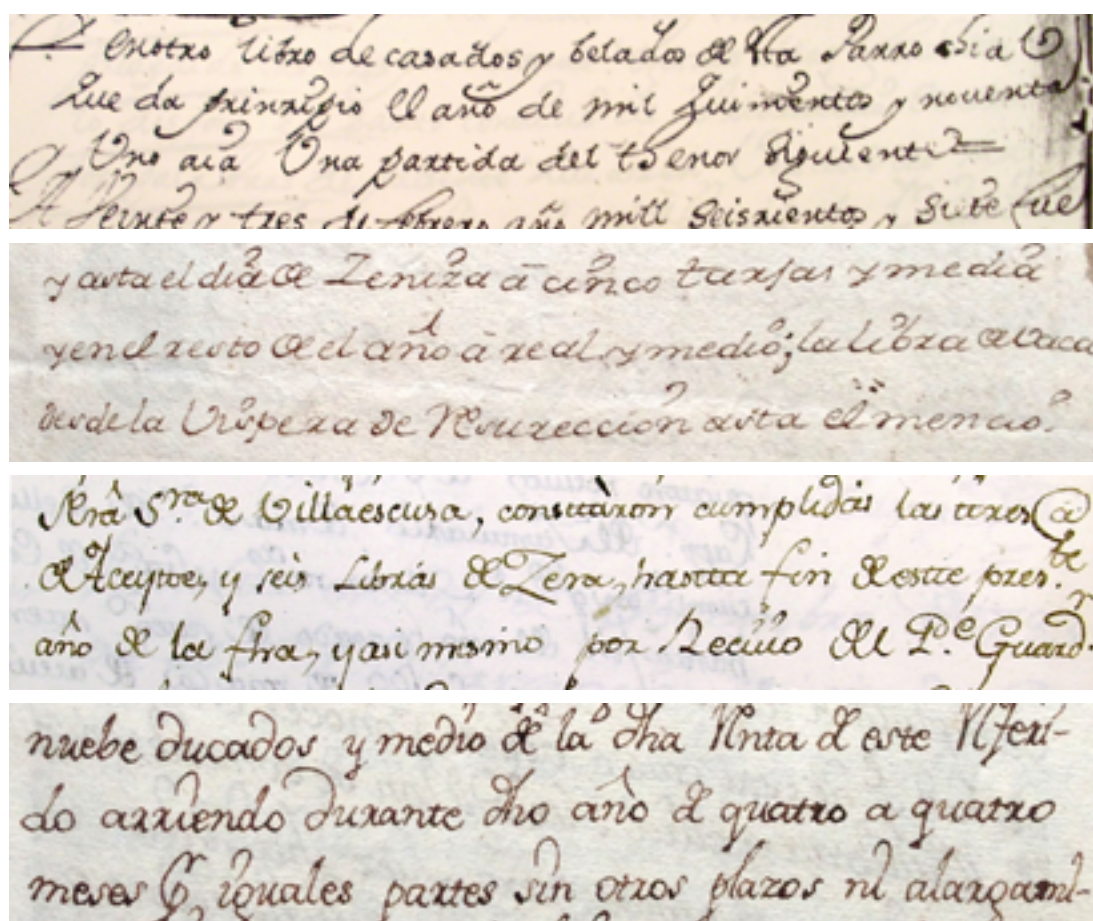 en otro libro de casados y belados de sta Parrochia
que da prinzipio el año de mil quinientos y noventa
Uno aia Una partida del thenor siguiente
A Veinte y tres de febrero año mill seiszientos y siete fue
y asta el dia de Zeniza a cinco tarjas y media
y en el resto de el año a real y medio; la libra de Vaca
desde la Vispera de Resureccion asta el mencio.
Nra Sra. de Villaescusa, constaron cumplidas las tres
de Aceyte, y seis Libras de Zera, hasta fin de este pres.te
año de la fha, y asi mismo por Recivo del P.e Guard.n
nuebe ducados y medio de la dha Renta de este Referi-
do arriendo durante dho año de quatro a quatro
meses iguales partes sin otros plazos ni alargami-